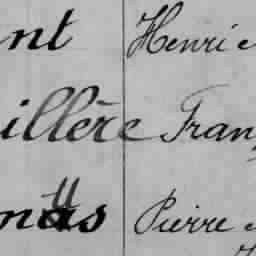 nt Henri
illère Fran
Pierre